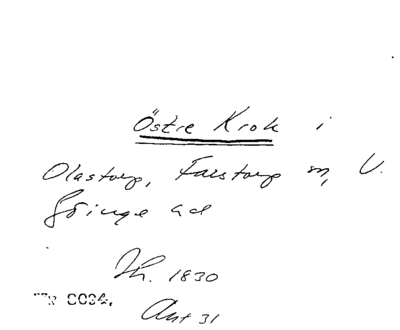 Östre Krok i
Olastorp, Farstorp sn, V.
Göinge hd
Th. 1830
0034, Ant 31